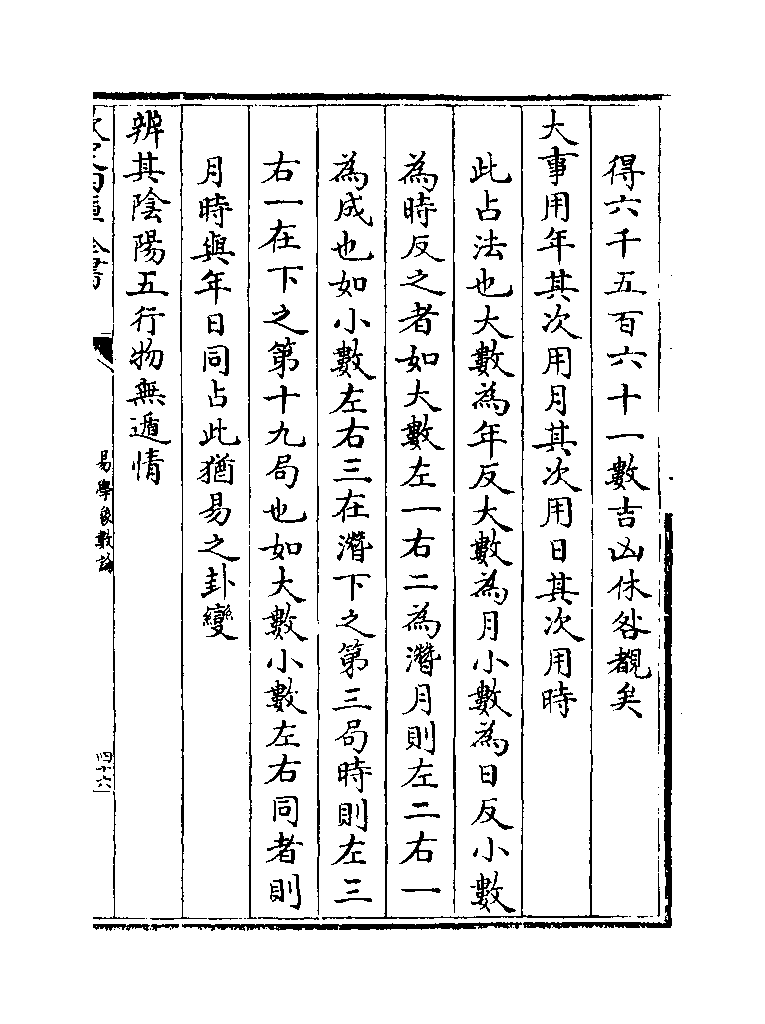 得六千五百六十一數吉凶休咎覩矣
大事用年其次用月其次用日其次用時
此占法也大數為年反大數為月小數為日反小數
為時反之者如大數左一右二為潛月則左二右一
為成也如小數左右三在潛下之第三局時則左三
右一在下之第十九局也如大數小數左右同者則
月時與年日同占此猶易之卦變
辨其陰陽五行物無遁情
欽定四庫全書
易學象數論
四十六